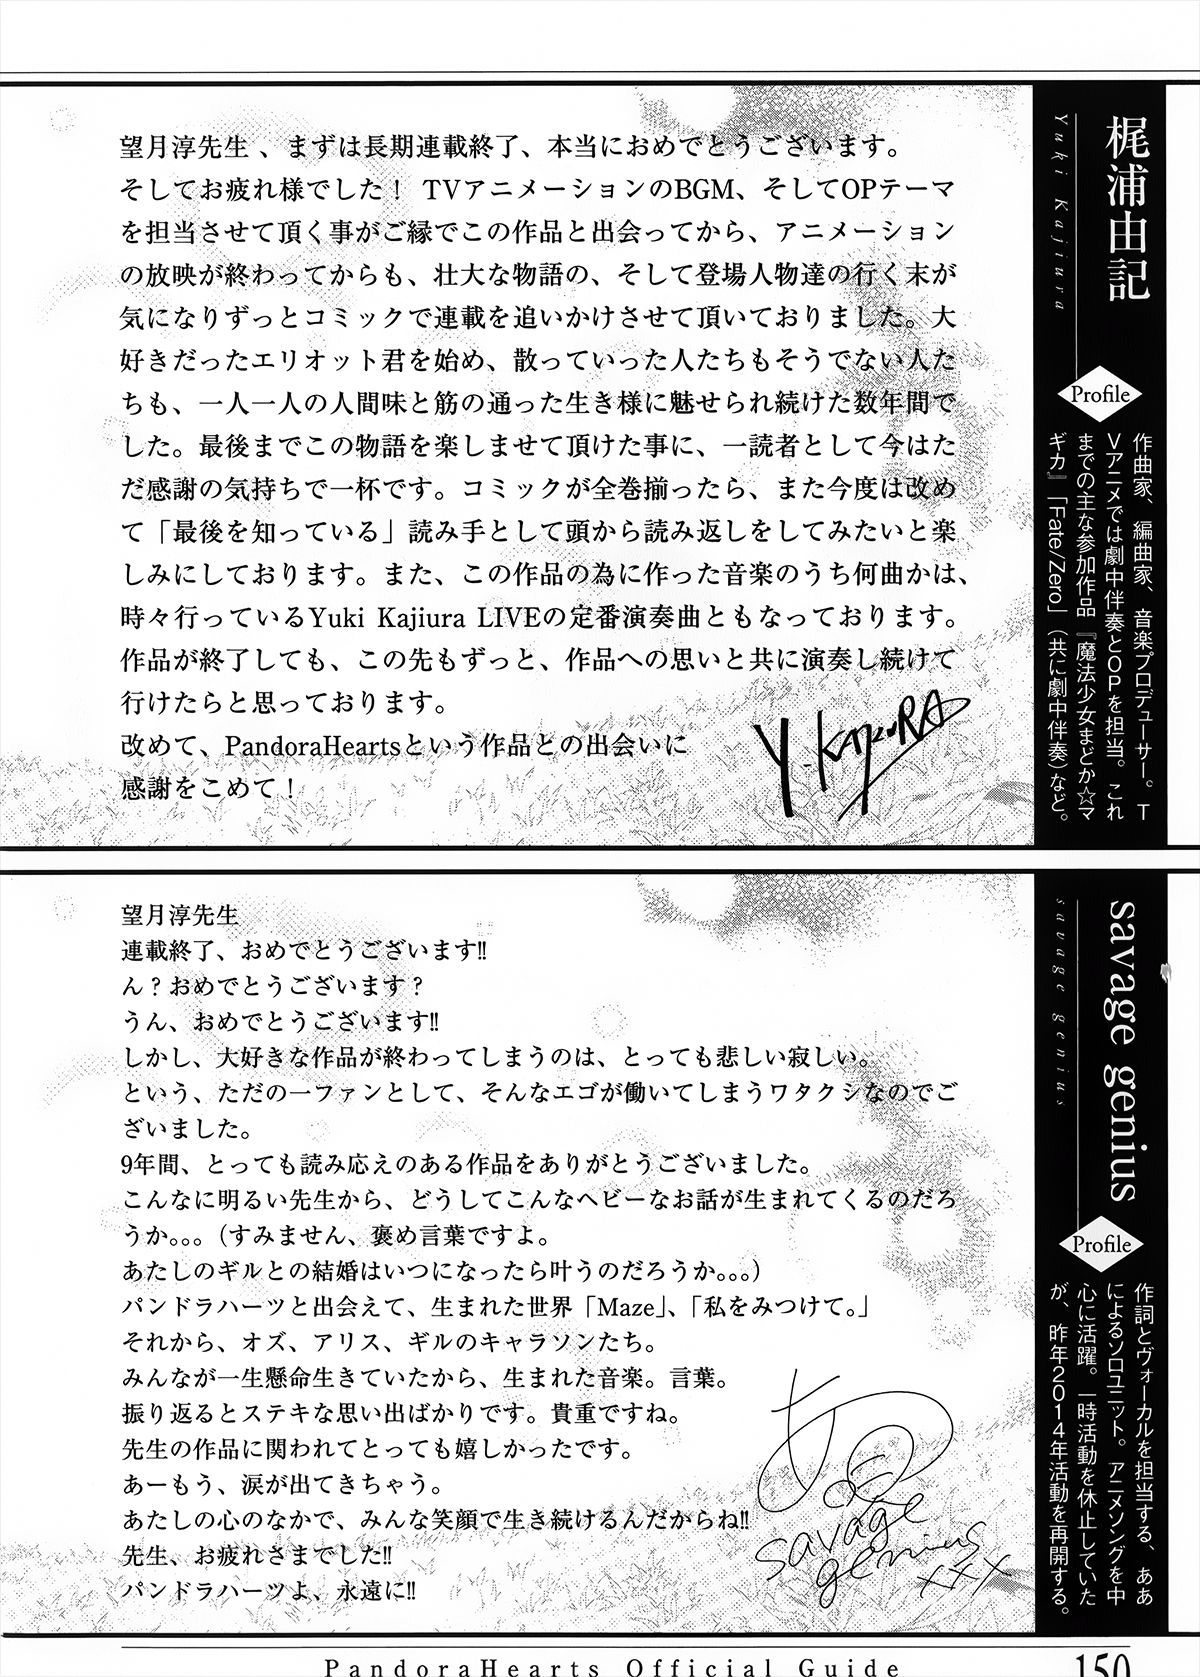 梶浦由記
Yuki Kajiura
Profile
作曲家、編曲家、音楽プロデューサー。T
Vアニメでは劇中伴奏とOPを担当。これ
までの主な参加作品『魔法少女まどか☆マ
ギカ』「Fate/Zero」（共に劇中伴奏）など。
望月淳先生 、まずは長期連載終了、本当におめでとうございます。
そしてお疲れ様でした！ TVアニメーションのBGM、そしてOPテーマ
を担当させて頂く事がご縁でこの作品と出会ってから、アニメーション
の放映が終わってからも、壮大な物語の、そして登場人物達の行く末が
気になりずっとコミックで連載を追いかけさせて頂いておりました。大
好きだったエリオット君を始め、散っていった人たちもそうでない人た
ちも、一人一人の人間味と筋の通った生き様に魅せられ続けた数年間で
した。最後までこの物語を楽しませて頂けた事に、一読者として今はた
だ感謝の気持ちで一杯です。コミックが全巻揃ったら、また今度は改め
て「最後を知っている」読み手として頭から読み返しをしてみたいと楽
しみにしております。また、この作品の為に作った音楽のうち何曲かは、
時々行っているYuki Kajiura LIVEの定番演奏曲ともなっております。
作品が終了しても、この先もずっと、作品への思いと共に演奏し続けて
行けたらと思っております。
改めて、PandoraHeartsという作品との出会いに
感謝をこめて！
Y.KAJIURA
savage genius
savage genius
Profile
作詞とヴォーカルを担当する、ああ
によるソロユニット。アニメソングを中
心に活躍。一時活動を休止していた
が、昨年2014年活動を再開する。
望月淳先生
連載終了、おめでとうございます!!
ん？おめでとうございます？
うん、おめでとうございます!!
しかし、大好きな作品が終わってしまうのは、とっても悲しい寂しい。
という、ただの一ファンとして、そんなエゴが働いてしまうワタクシなのでご
ざいました。
9年間、とっても読み応えのある作品をありがとうございました。
こんなに明るい先生から、どうしてこんなヘビーなお話が生まれてくるのだろ
うか。。。（すみません、褒め言葉ですよ。
あたしのギルとの結婚はいつになったら叶うのだろうか。。。）
パンドラハーツと出会えて、生まれた世界「Maze」、「私をみつけて。」
それから、オズ、アリス、ギルのキャラソンたち。
みんなが一生懸命生きていたから、生まれた音楽。言葉。
振り返るとステキな思い出ばかりです。貴重ですね。
先生の作品に関われてとっても嬉しかったです。
あーもう、涙が出てきちゃう。
あたしの心のなかで、みんな笑顔で生き続けるんだからね!!
先生、お疲れさまでした!!
パンドラハーツよ、永遠に!!
ああ
savage
genius
xxx
PandoraHearts Official Guide
150